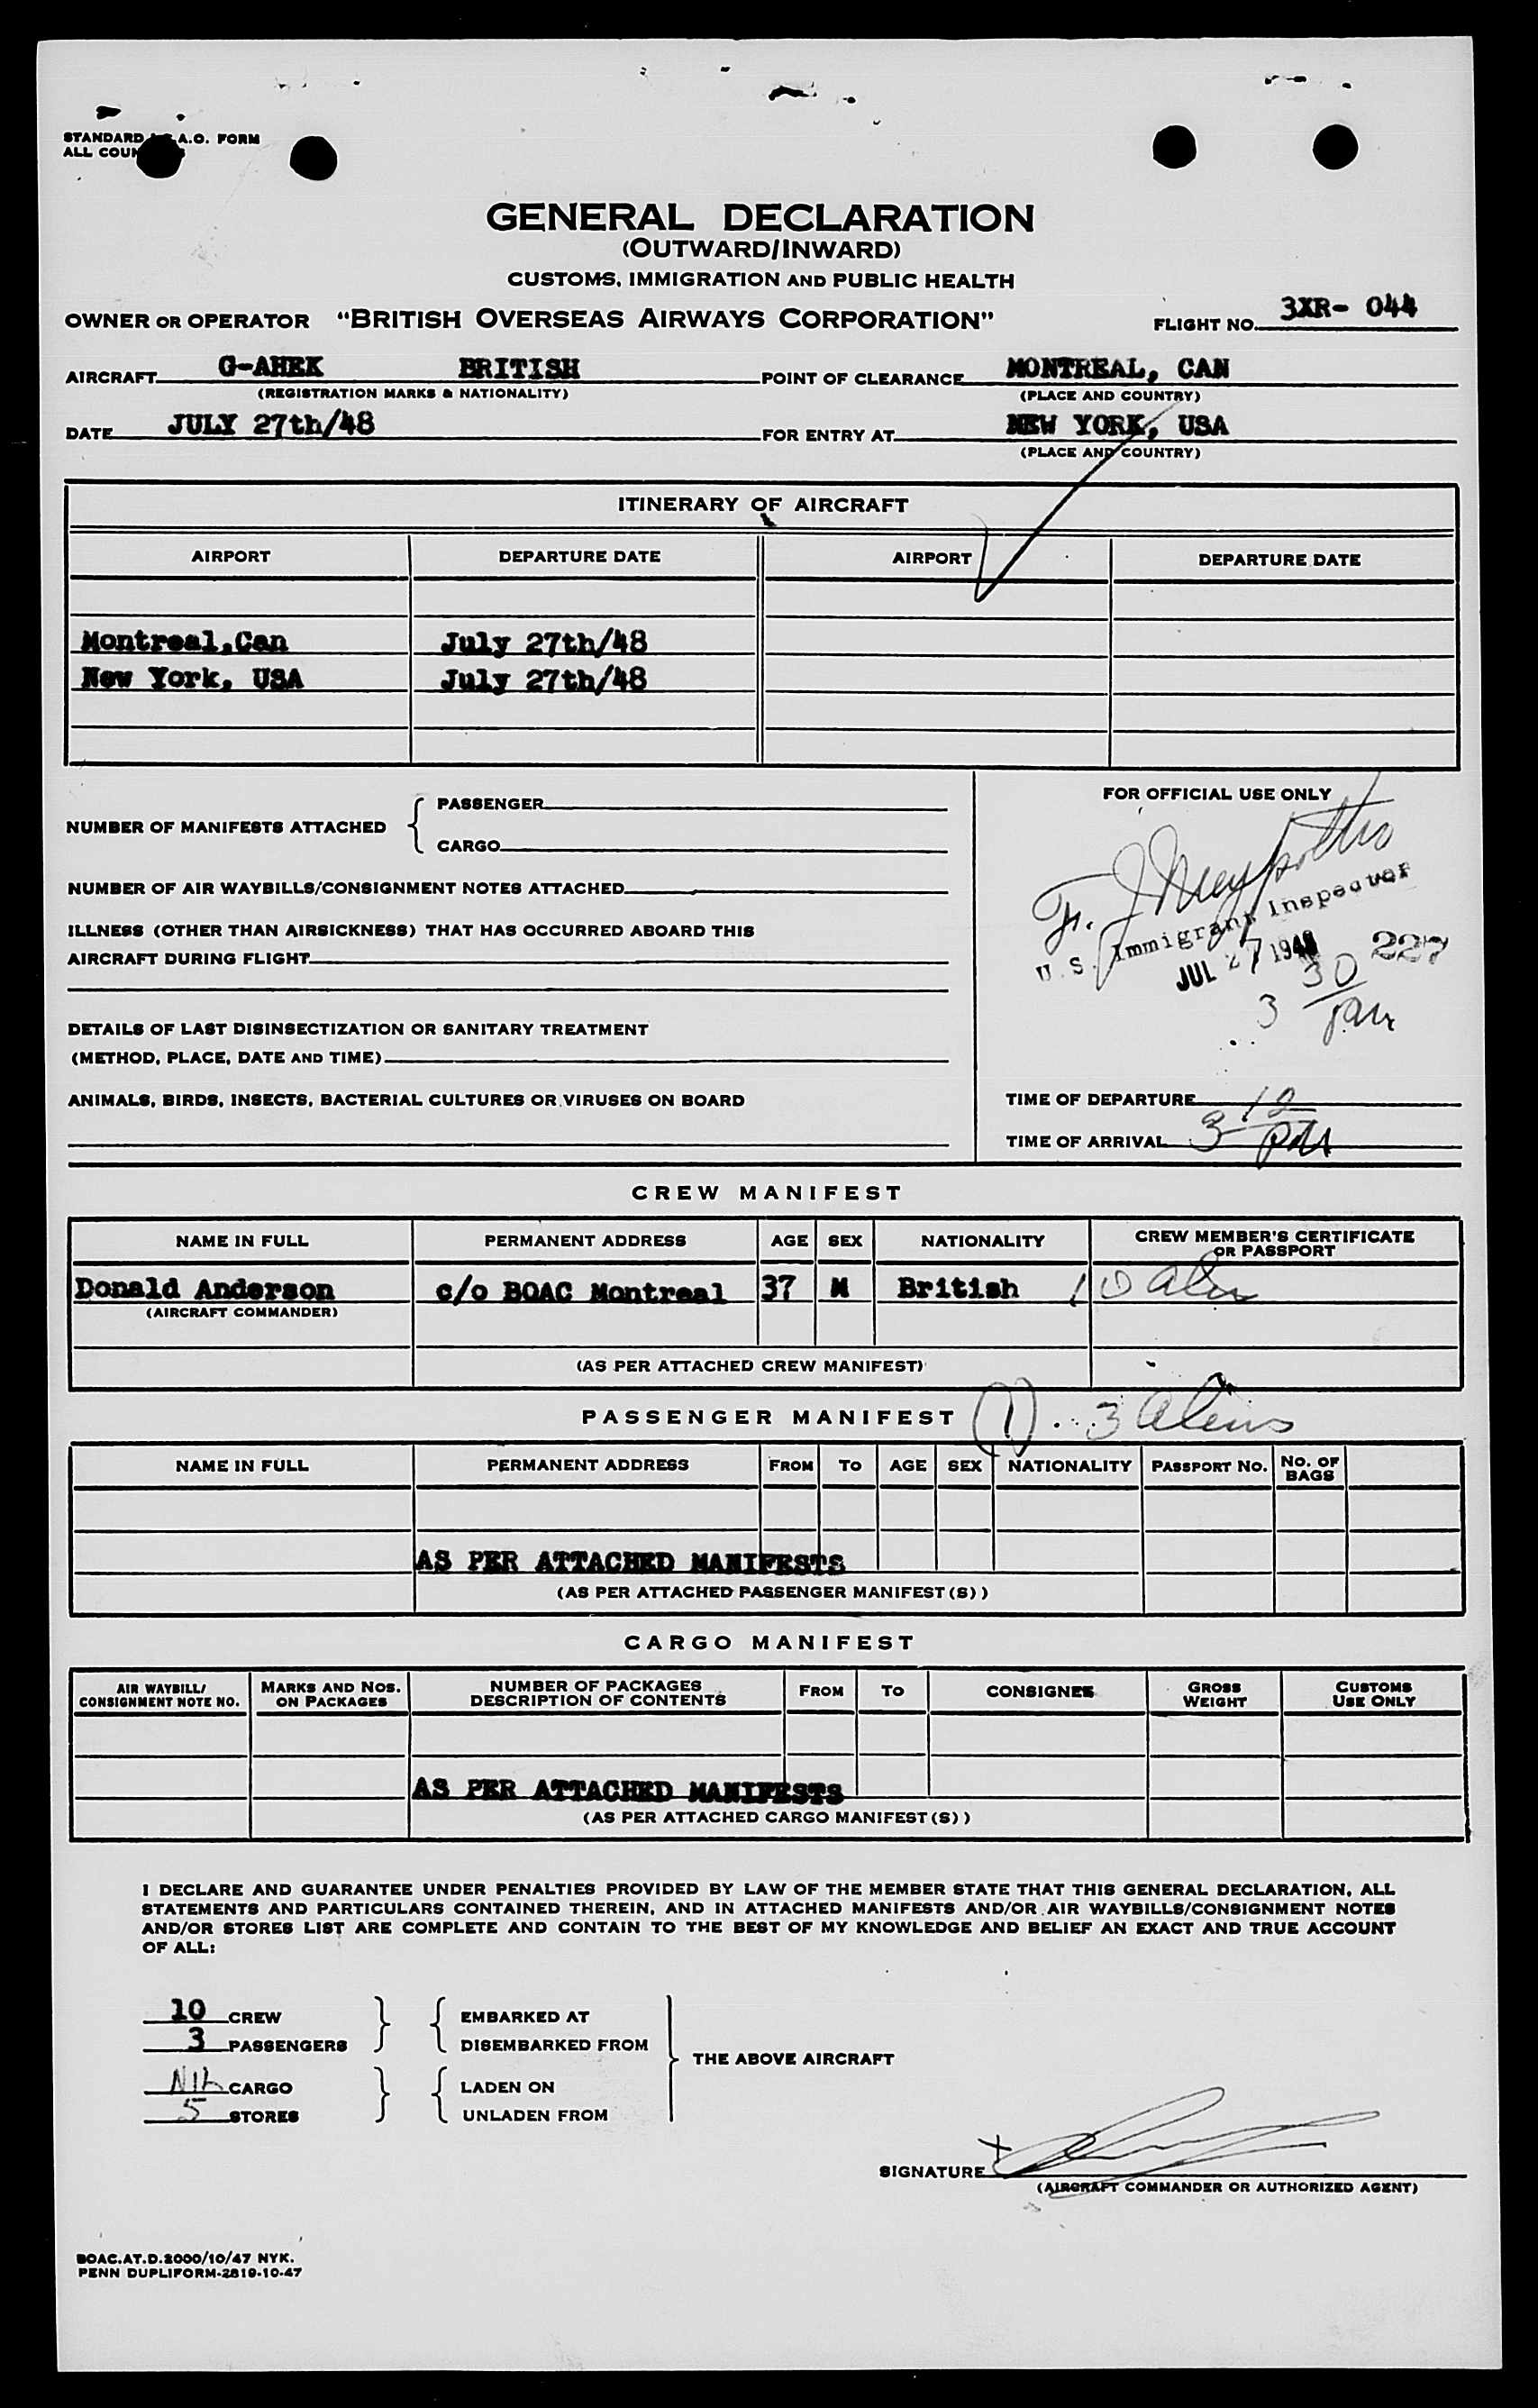 STANDARD A.O. FORM
ALL COUN
GENERAL DECLARATION
(OUTWARD/INWARD)
CUSTOMS, IMMIGRATION AND PUBLIC HEALTH
OWNER OR OPERATOR "BRITISH OVERSEAS AIRWAYS CORPORATION" FLIGHT NO. 3XR- 044
AIRCRAFT G-AHEK BRITISH POINT OF CLEARANCE MONTREAL, CAN
(REGISTRATION MARKS & NATIONALITY) (PLACE AND COUNTRY)
DATE JULY 27th/48 FOR ENTRY AT NEW YORK, USA
(PLACE AND COUNTRY)
ITINERARY OF AIRCRAFT
AIRPORT DEPARTURE DATE AIRPORT DEPARTURE DATE
Montreal,Can July 27th/48
New York, USA July 27th/48
FOR OFFICIAL USE ONLY
NUMBER OF MANIFESTS ATTACHED { PASSENGER
CARGO
NUMBER OF AIR WAYBILLS/CONSIGNMENT NOTES ATTACHED
U.S. Immigrant Inspector
ILLNESS (OTHER THAN AIRSICKNESS) THAT HAS OCCURRED ABOARD THIS
AIRCRAFT DURING FLIGHT
JUL 27 1948 227
3 30 pm
DETAILS OF LAST DISINSECTIZATION OR SANITARY TREATMENT
(METHOD, PLACE, DATE AND TIME)
ANIMALS, BIRDS, INSECTS, BACTERIAL CULTURES OR VIRUSES ON BOARD
TIME OF DEPARTURE
TIME OF ARRIVAL 3 12 PM
CREW MANIFEST
NAME IN FULL PERMANENT ADDRESS AGE SEX NATIONALITY CREW MEMBER'S CERTIFICATE
OR PASSPORT
Donald Anderson c/o BOAC Montreal 37 M British 10
(AIRCRAFT COMMANDER)
(AS PER ATTACHED CREW MANIFEST)
PASSENGER MANIFEST (1) 3 aliens
NAME IN FULL PERMANENT ADDRESS FROM TO AGE SEX NATIONALITY PASSPORT NO. NO. OF
BAGS
AS PER ATTACHED MANIFESTS
(AS PER ATTACHED PASSENGER MANIFEST (S) )
CARGO MANIFEST
AIR WAYBILL/ MARKS AND NOS. NUMBER OF PACKAGES FROM TO CONSIGNEE GROSS CUSTOMS
CONSIGNMENT NOTE NO. ON PACKAGES DESCRIPTION OF CONTENTS WEIGHT USE ONLY
AS PER ATTACHED MANIFESTS
(AS PER ATTACHED CARGO MANIFEST (S) )
I DECLARE AND GUARANTEE UNDER PENALTIES PROVIDED BY LAW OF THE MEMBER STATE THAT THIS GENERAL DECLARATION, ALL
STATEMENTS AND PARTICULARS CONTAINED THEREIN, AND IN ATTACHED MANIFESTS AND/OR AIR WAYBILLS/CONSIGNMENT NOTES
AND/OR STORES LIST ARE COMPLETE AND CONTAIN TO THE BEST OF MY KNOWLEDGE AND BELIEF AN EXACT AND TRUE ACCOUNT
OF ALL:
10 CREW EMBARKED AT
3 PASSENGERS DISEMBARKED FROM
THE ABOVE AIRCRAFT
NIL CARGO LADEN ON
5 STORES UNLADEN FROM
SIGNATURE X
(AIRCRAFT COMMANDER OR AUTHORIZED AGENT)
BOAC.AT.D.2000/10/47 NYK.
PENN DUPLIFORM-2819-10-47